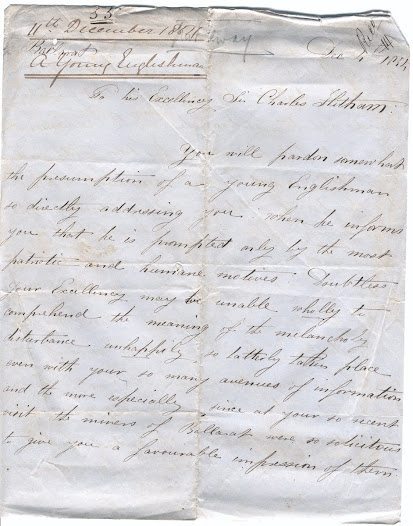 55
11th December 1854
Dec 4 1854
A Young Englishman
To his Excellency Sir Charles Hotham:
You will pardon somewhat
the presumption of a young Englishman
so directly addressing you when he informs
you that he is prompted only by the most
patriotic and humane motives. Doubtless
Your Excellency may be unable wholly to
comprehend the meaning of the melancholy
disturbance unhappily so latterly taken place
even with your so many avenues of information
and the more especially since at your so recent
visit the miners of Ballarat were so solicitous
to give you a favourable impression of them.